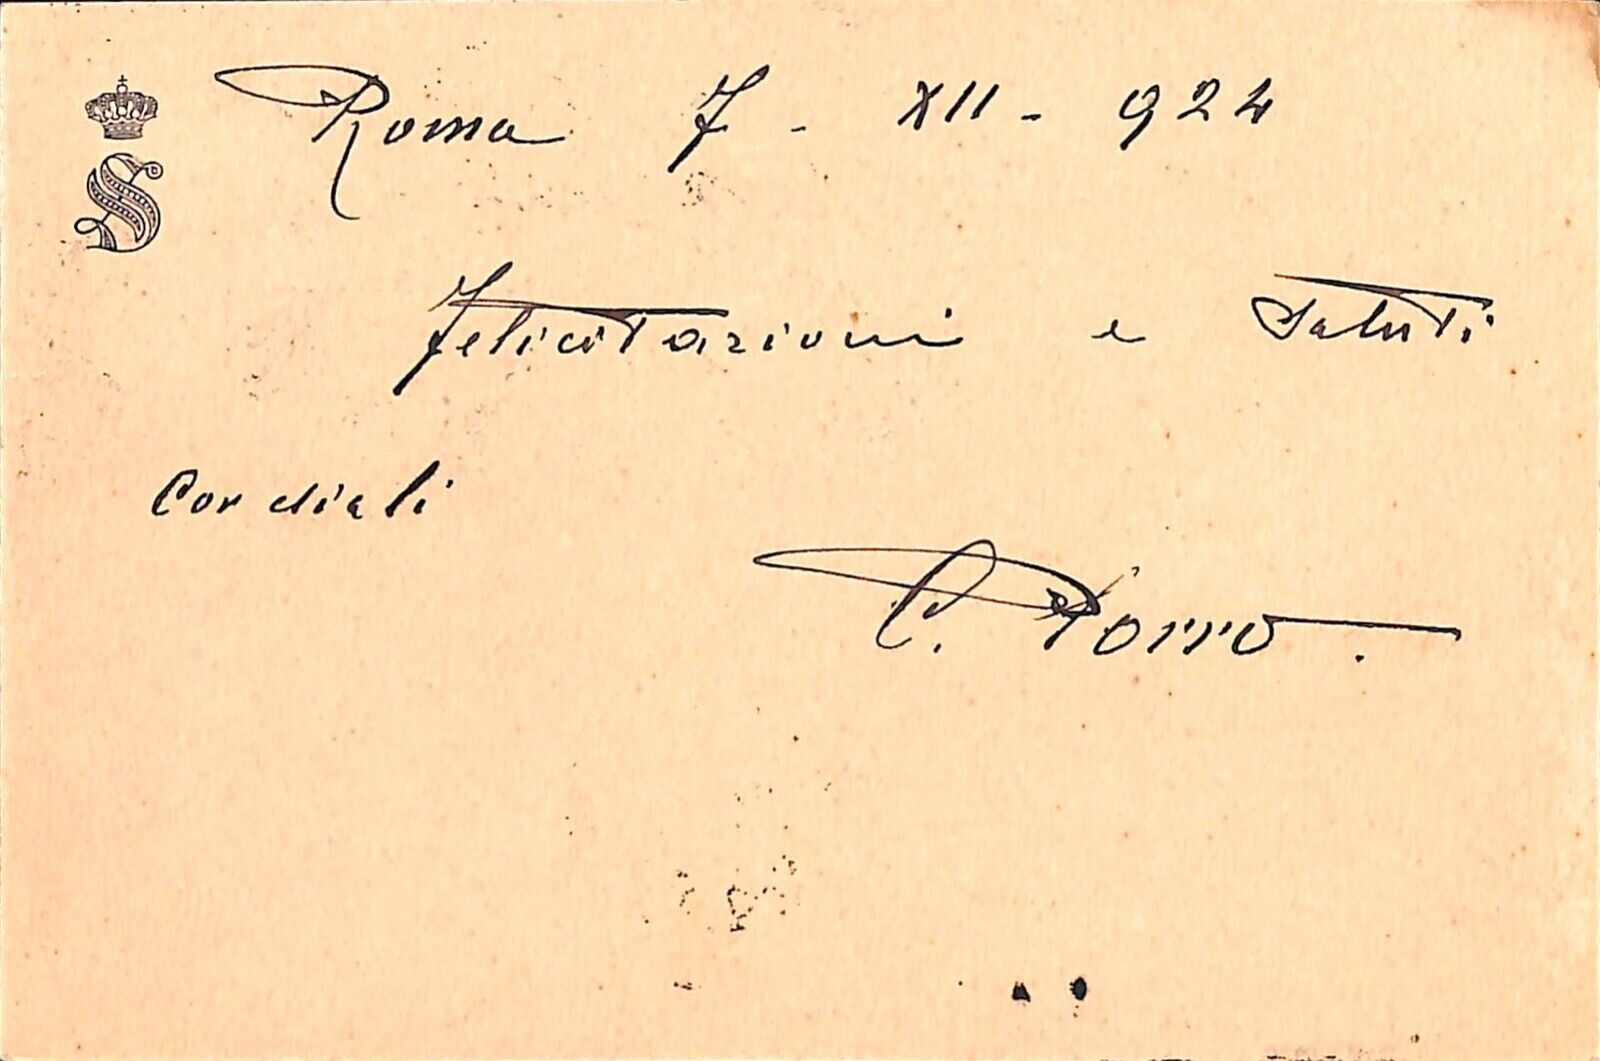 S
Roma 7 - XII - 924
Felicitazioni e saluti
Cordiali
C. Porro.